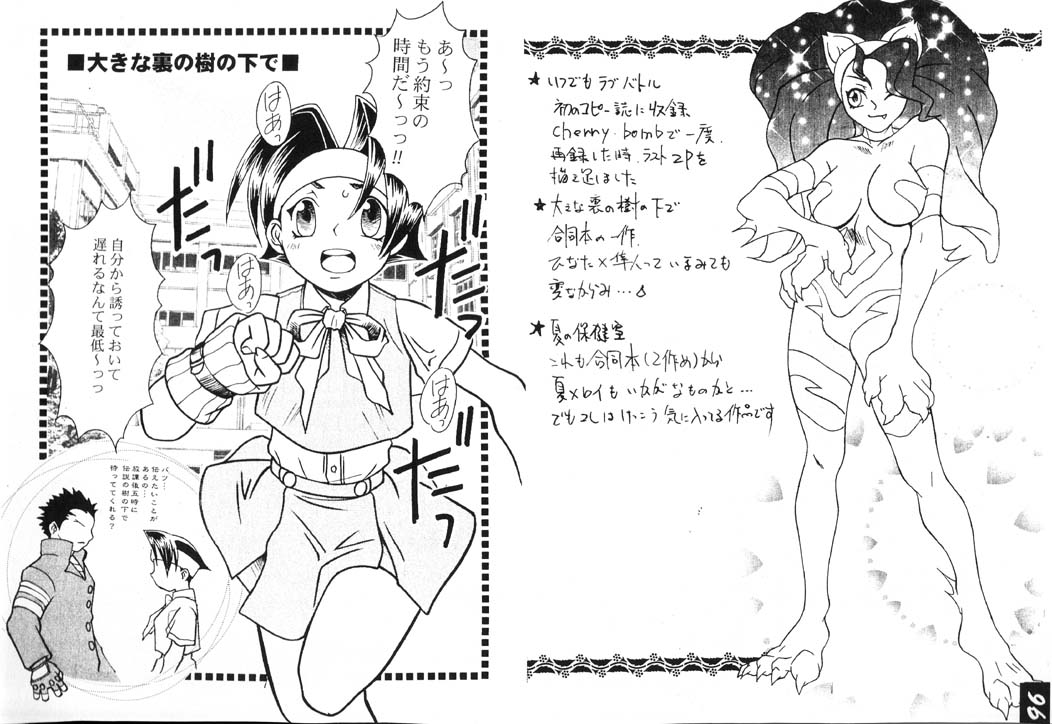 ■大きな裏の樹の下で■
あ～っ
もう約束の
時間だ～っっ!!
はあっ
ダッ
はあっ
ダッ
はあっ
ダッ
自分から誘っておいて
遅れるなんて最低～っっ
バツ…
伝えたいことが
あるの…
放課後五時に
伝説の樹の下で
待っててくれる？
★いつでもラブバトル
初のコピー誌に収録
cherry・bombで一度、
再録した時、ラスト2Pを
描き足しました
★大きな裏の樹の下で
合同本の一作、
ひなた×隼人っていまみても
変なからみ…
★夏の保健室
これも合同本(2作め)から
夏×ロイもいかがなものかと…
でもコレはけっこう気に入ってる作品です
96